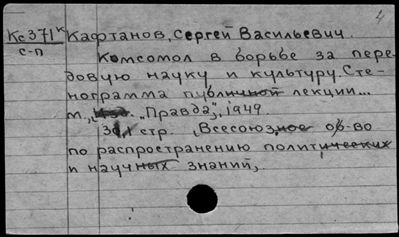 4
Кс371к Кафтанов, Сергей Васильевич.
с-п
Комсомол в борьбе за пере-
довую науку и культуру. Сте-
нограмма публичной лекции...
М., "Правда", 1949.
стр. (Всесоюзное об-во
по распространению политических
и научных знаний).